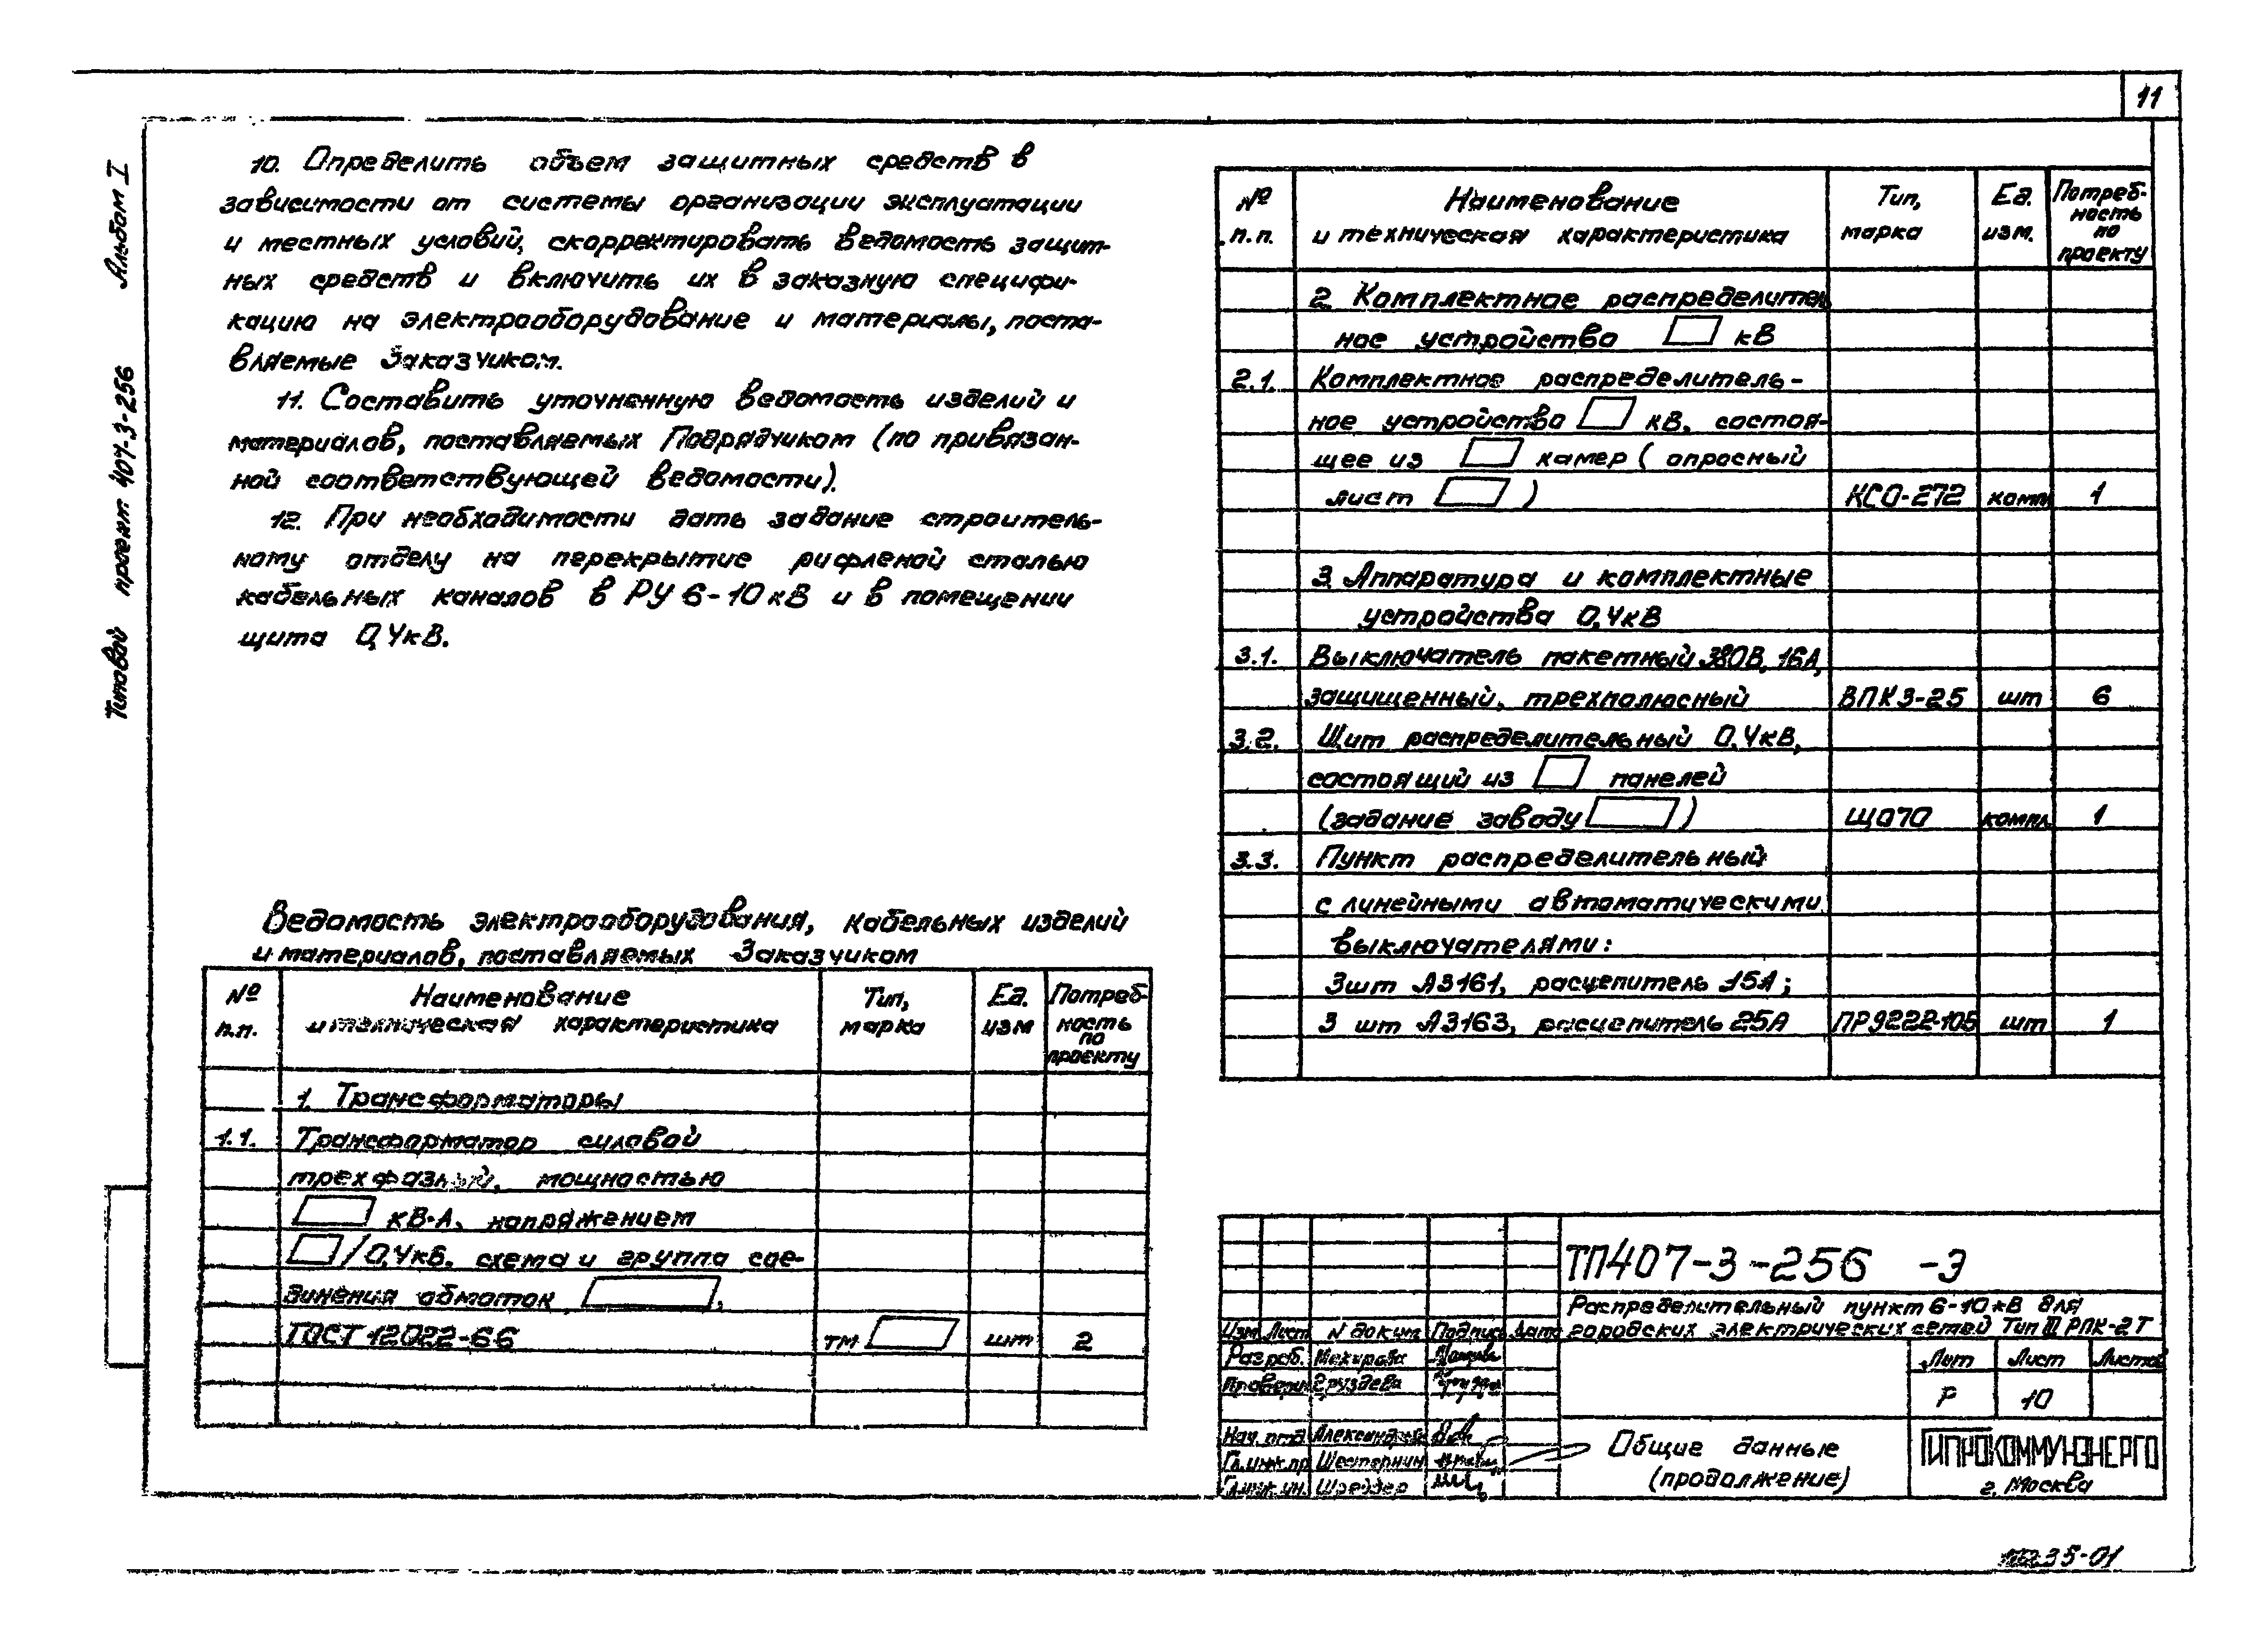 11
Альбом I
Типовой проект 407-3-256
10. Определить объем защитных средств в
зависимости от системы организации эксплуатации
и местных условий, скорректировать ведомость защит-
ных средств и включить их в заказную специфи-
кацию на электрооборудование и материалы, поста-
вляемые Заказчиком.
11. Составить уточненную ведомость изделий и
материалов, поставляемых Подрядчиком (по привязан-
ной соответствующей ведомости).
12. При необходимости дать задание строитель-
ному отделу на перекрытие рифленой сталью
кабельных каналов в РУ 6-10кВ и в помещении
щита 0,4кВ.
Ведомость электрооборудования, кабельных изделий
и материалов, поставляемых Заказчиком
№ п.п. Наименование и техническая характеристика Тип, марка Ед. изм Потреб- ность по проекту
1. Трансформаторы
1.1. Трансформатор силовой
трехфазный, мощностью
кВ·А, напряжением
/0,4кВ, схема и группа сое-
динения обмоток ,
ГОСТ 12022-66 ТМ шт 2
№ п.п. Наименование и техническая характеристика Тип, марка Ед. изм. Потреб- ность по проекту
2 Комплектное распределитель
ное устройство кВ
2.1. Комплектное распределитель-
ное устройство кВ, состоя-
щее из камер (опросный
лист ) КСО-272 комп 1
3. Аппаратура и комплектные
устройства 0,4кВ
3.1. Выключатель пакетный 380В, 16А,
защищенный, трехполюсный ВПК3-25 шт 6
3.2. Щит распределительный 0,4кВ,
состоящий из панелей
(задание заводу ) ЩО70 компл. 1
3.3. Пункт распределительный
с линейными автоматическими
выключателями:
3шт А3161, расцепитель 15А;
3 шт А3163, расцепитель 25А ПР9222-105 шт 1
ТП407-3-256 -Э
Распределительный пункт 6-10кВ для
городских электрических сетей Тип III РПК-2Т
Изм Лист N докум Подпись Дата
Разраб.
Проверил Груздева
Нач. отд
Гл.инж.пр
Гл.инж.ин. Шрейдер
Лит Лист Листов
Р 10
Общие данные
(продолжение)
ГИПРОКОММУНЭНЕРГО
г. Москва
35-01